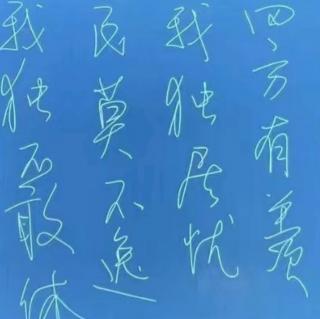 四方有羡
我独居忧
民莫不逸
我独不敢休